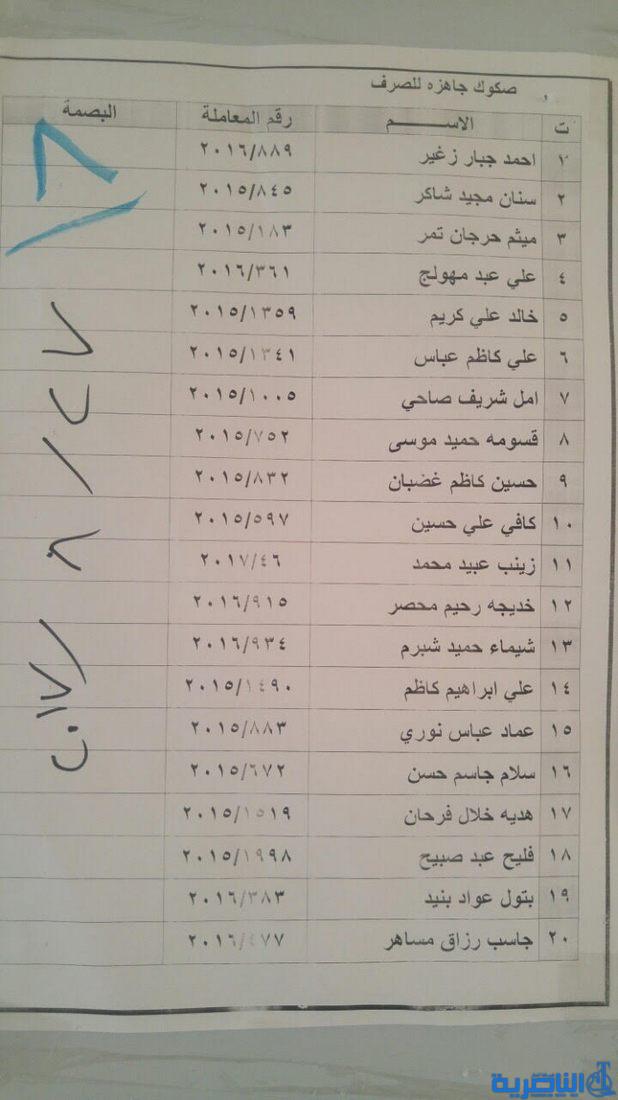 صكوك جاهزه للصرف
ت الاســـــم رقم المعاملة البصمة
١ احمد جبار زغير ٢٠١٦/٨٨٩
٢ سنان مجيد شاكر ٢٠١٥/٨٤٥
٣ ميثم حرجان تمر ٢٠١٥/١٨٣
٤ علي عبد مهولج ٢٠١٦/٣٦١
٥ خالد علي كريم ٢٠١٥/١٣٥٩
٦ علي كاظم عباس ٢٠١٥/١٣٤١
٧ امل شريف صاحي ٢٠١٥/١٠٠٥
٨ قسومه حميد موسى ٢٠١٥/٧٥٢
٩ حسين كاظم غضبان ٢٠١٥/٨٣٢
١٠ كافي علي حسين ٢٠١٥/٥٩٧
١١ زينب عبيد محمد ٢٠١٧/٤٦
١٢ خديجه رحيم محصر ٢٠١٦/٩١٥
١٣ شيماء حميد شبرم ٢٠١٦/٩٣٤
١٤ علي ابراهيم كاظم ٢٠١٥/١٤٩٠
١٥ عماد عباس نوري ٢٠١٥/٨٨٣
١٦ سلام جاسم حسن ٢٠١٥/٦٧٢
١٧ هديه خلال فرحان ٢٠١٥/١٥١٩
١٨ فليح عبد صبيح ٢٠١٥/١٩٩٨
١٩ بتول عواد بنيد ٢٠١٦/٣٨٣
٢٠ جاسب رزاق مساهر ٢٠١٦/٤٧٧
الناصرية